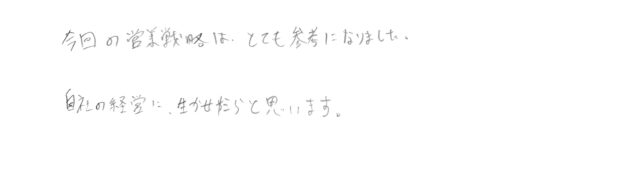 今回の営業戦略は、とても参考になりました。
自社の経営に、生かせたらと思います。